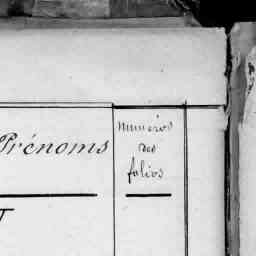 Prénoms
numéros
des
folios